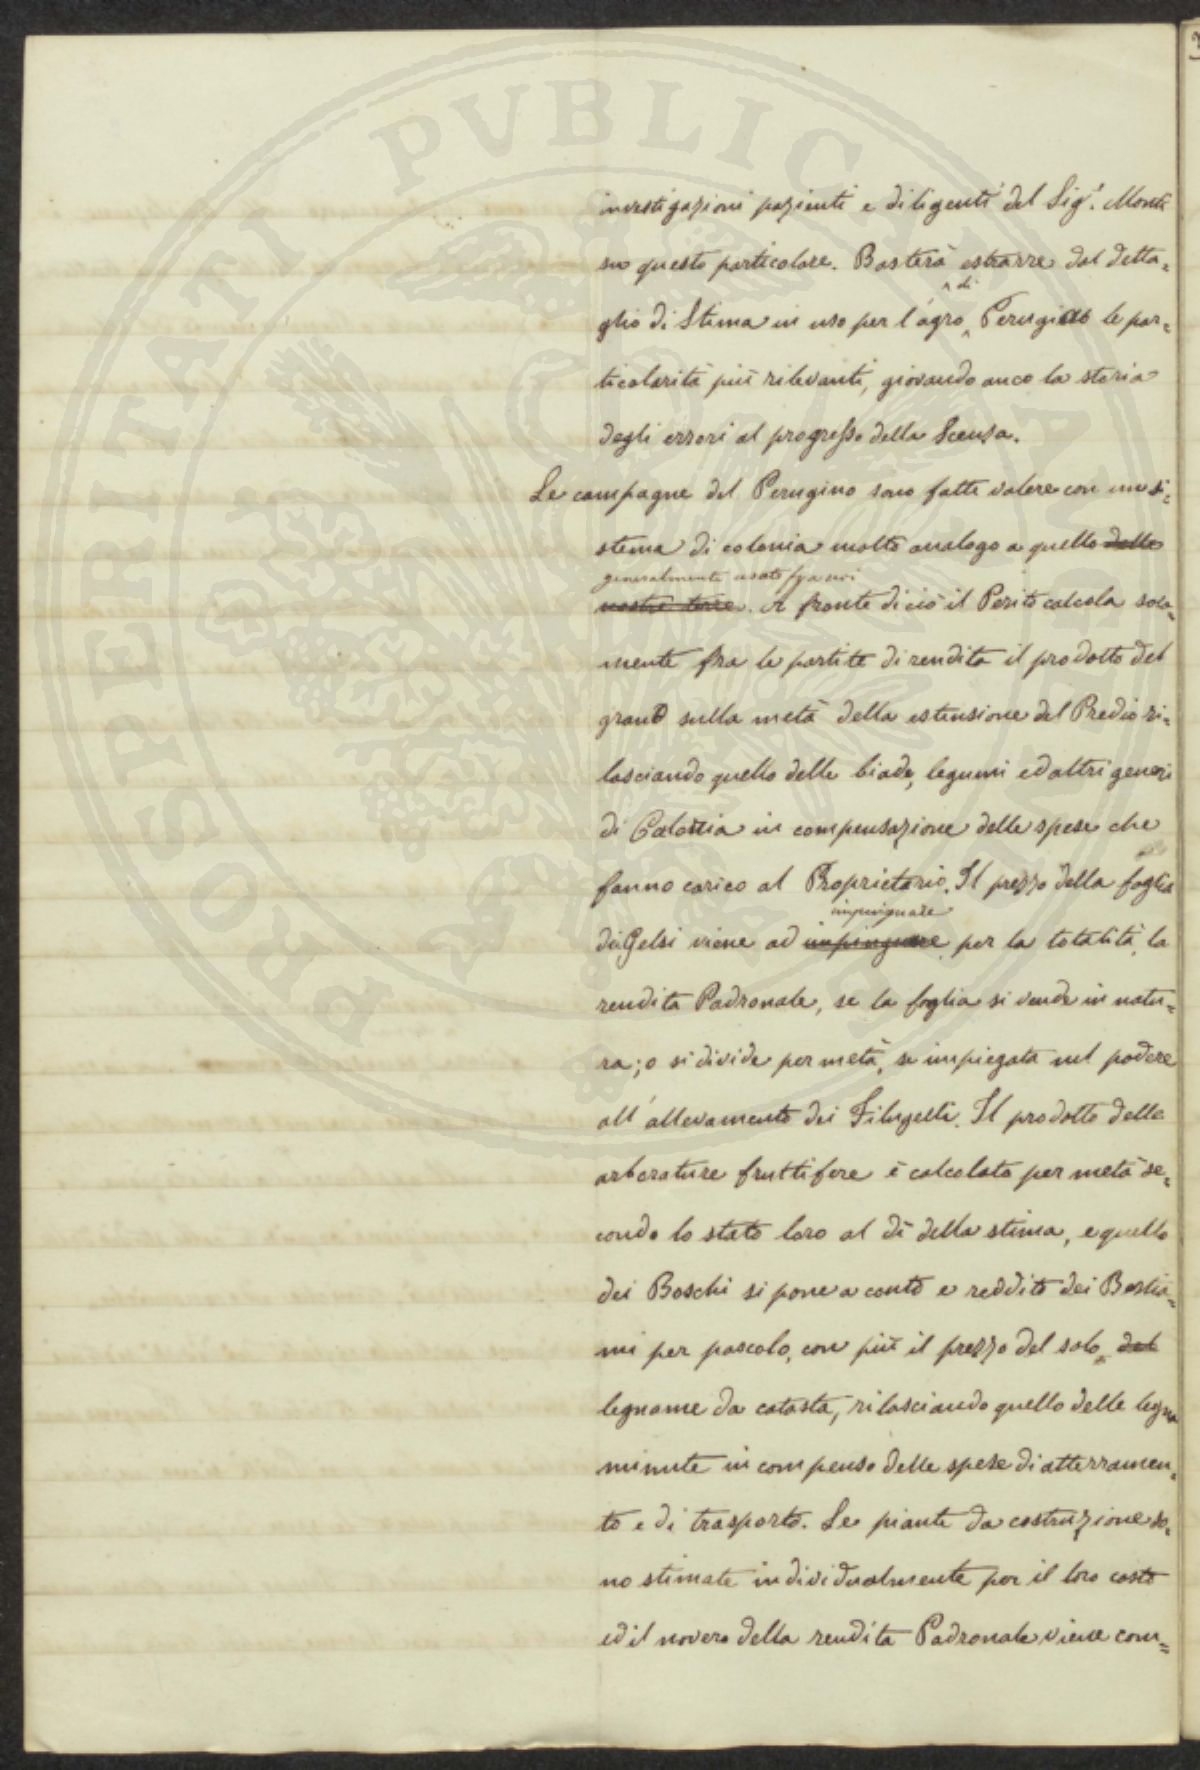 investigazioni pazienti e diligenti del Sig.r Monti
su questo particolare. Basterà estrarre dal detta=
glio di Stima in uso per l'agro di Perugia le par=
ticolarità più rilevanti, giovando anco la storia
degli errori al progresso della Scenza.
Le campagne del Perugino sono fatte valere con un si=
stema di colonia molto analogo a quello delle
generalmente usato fra noi
nostre terre. A fronte di ciò il Perito calcola sola=
mente fra le partite di rendita il prodotto del
grano sulla metà della estensione del Predio ri=
lasciando quello delle biade, legumi ed altri generi
di Calostia in compensazione delle spese che
fanno carico al Proprietario. Il prezzo della foglia
impinguare
di Gelsi viene ad impinguare per la totalità, la
rendita Padronale, se la foglia si vende in natu=
ra; o si divide per metà, se impiegata nel podere
all'allevamento dei Filugelli. Il prodotto delle
arborature fruttifere è calcolato per metà se=
condo lo stato loro al dì della stima, e quello
dei Boschi si pone a conto e reddito dei Bestia=
mi per pascolo, con più il prezzo del solo del
legname da catasta, rilasciando quello delle legna
minute in compenso delle spese di atterramen=
to e di trasporto. Le piante da costruzione so=
no stimate individualmente per il loro costo
ed il novero della rendita Padronale viene com=
PROSPERITATI PUBLICAE